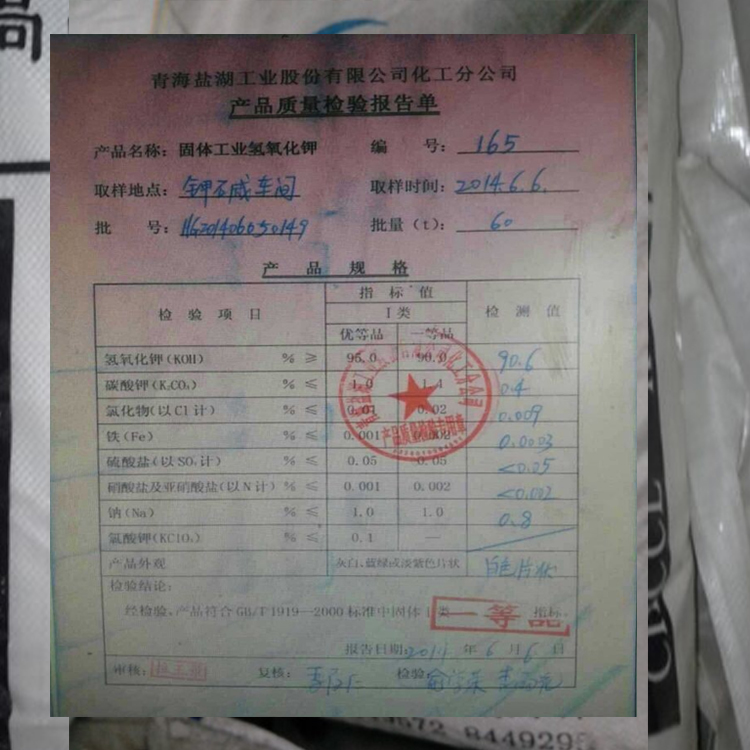 高
青海盐湖工业股份有限公司化工分公司
产品质量检验报告单
产品名称: 固体工业氢氧化钾 编 号: 165
取样地点: 钾碱车间 取样时间: 2014.6.6.
批 号: 批量(t): 60
产 品 规 格
检 验 项 目 指 标 值 检 测 值
I 类
优等品 一等品
氢氧化钾(KOH) % ≥ 95.0 90.0 90.6
碳酸钾(K₂CO₃) % ≤ 1.0 1.4 0.4
氯化物(以Cl计) % ≤ 0.01 0.02 0.009
铁(Fe) % ≤ 0.001 0.0003
硫酸盐(以SO₄计) % ≤ 0.05 0.05 <0.05
硝酸盐及亚硝酸盐(以N计) % ≤ 0.001 0.002 <0.002
钠(Na) % ≤ 1.0 1.0 0.8
氯酸钾(KClO₃) % ≤ 0.1 —
产品外观 灰白、蓝绿或淡紫色片状 白色片状
检验结论:
经检验,产品符合GB/T1919—2000标准中固体I类 一等品 指标.
报告日期 2014 年 6 月 6 日
审核: 复核: 检验
产品质量检验专用章
0572 8449295